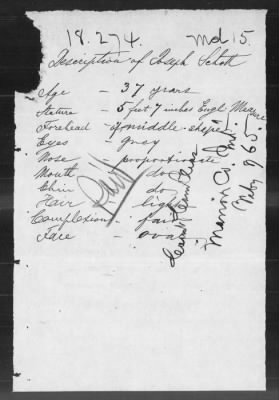 18.274. Md 15.
Description of Joseph Schott
Age - 37 years
Stature - 5 feet 7 inches Engl Measure
Forehead - of middle shape
Eyes - grey
Nose - proportionate
Mouth - do
Chin - do
Hair - light
Complexion - fair
Face - oval